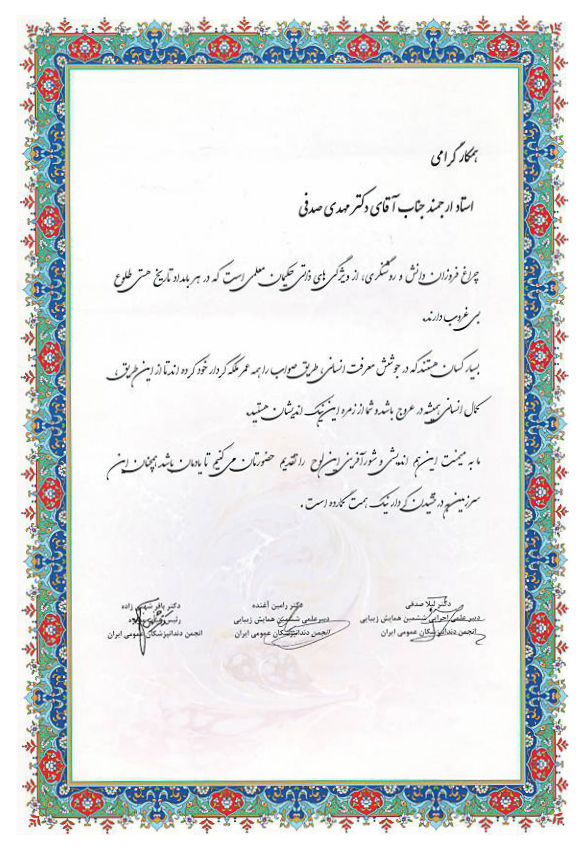 همکار گرامی
استاد ارجمند جناب آقای دکتر مهدی صدفی
چراغ فروزان دانش و روشنگری، از ویژگی های ذاتی حکیمان معلمی است که در هر بامداد تاریخ هستی طلوع
بی غروب دارند.
بسیار کسان هستند که در جوشش معرفت انسانی، طریق صواب را همه عمر ملکه کردار خود کرده اند تا از این طریق،
کمال انسانی همیشه در عروج باشد و شما از زمره این نیک اندیشان هستید.
ما به میمنت این هم اندیشی و شورآفرینی این لوح را تقدیم حضورتان می کنیم تا یادمان باشد همچنان این
سرزمین به درخشیدن کردار نیک همت گمارده است.
دکتر لیلا صدفی
دبیر علمی اجرایی ششمین همایش زیبایی
انجمن دندانپزشکان عمومی ایران
دکتر رامین آغنده
دبیر علمی ششمین همایش زیبایی
انجمن دندانپزشکان عمومی ایران
دکتر باقر شهنی زاده
رئیس
انجمن دندانپزشکان عمومی ایران